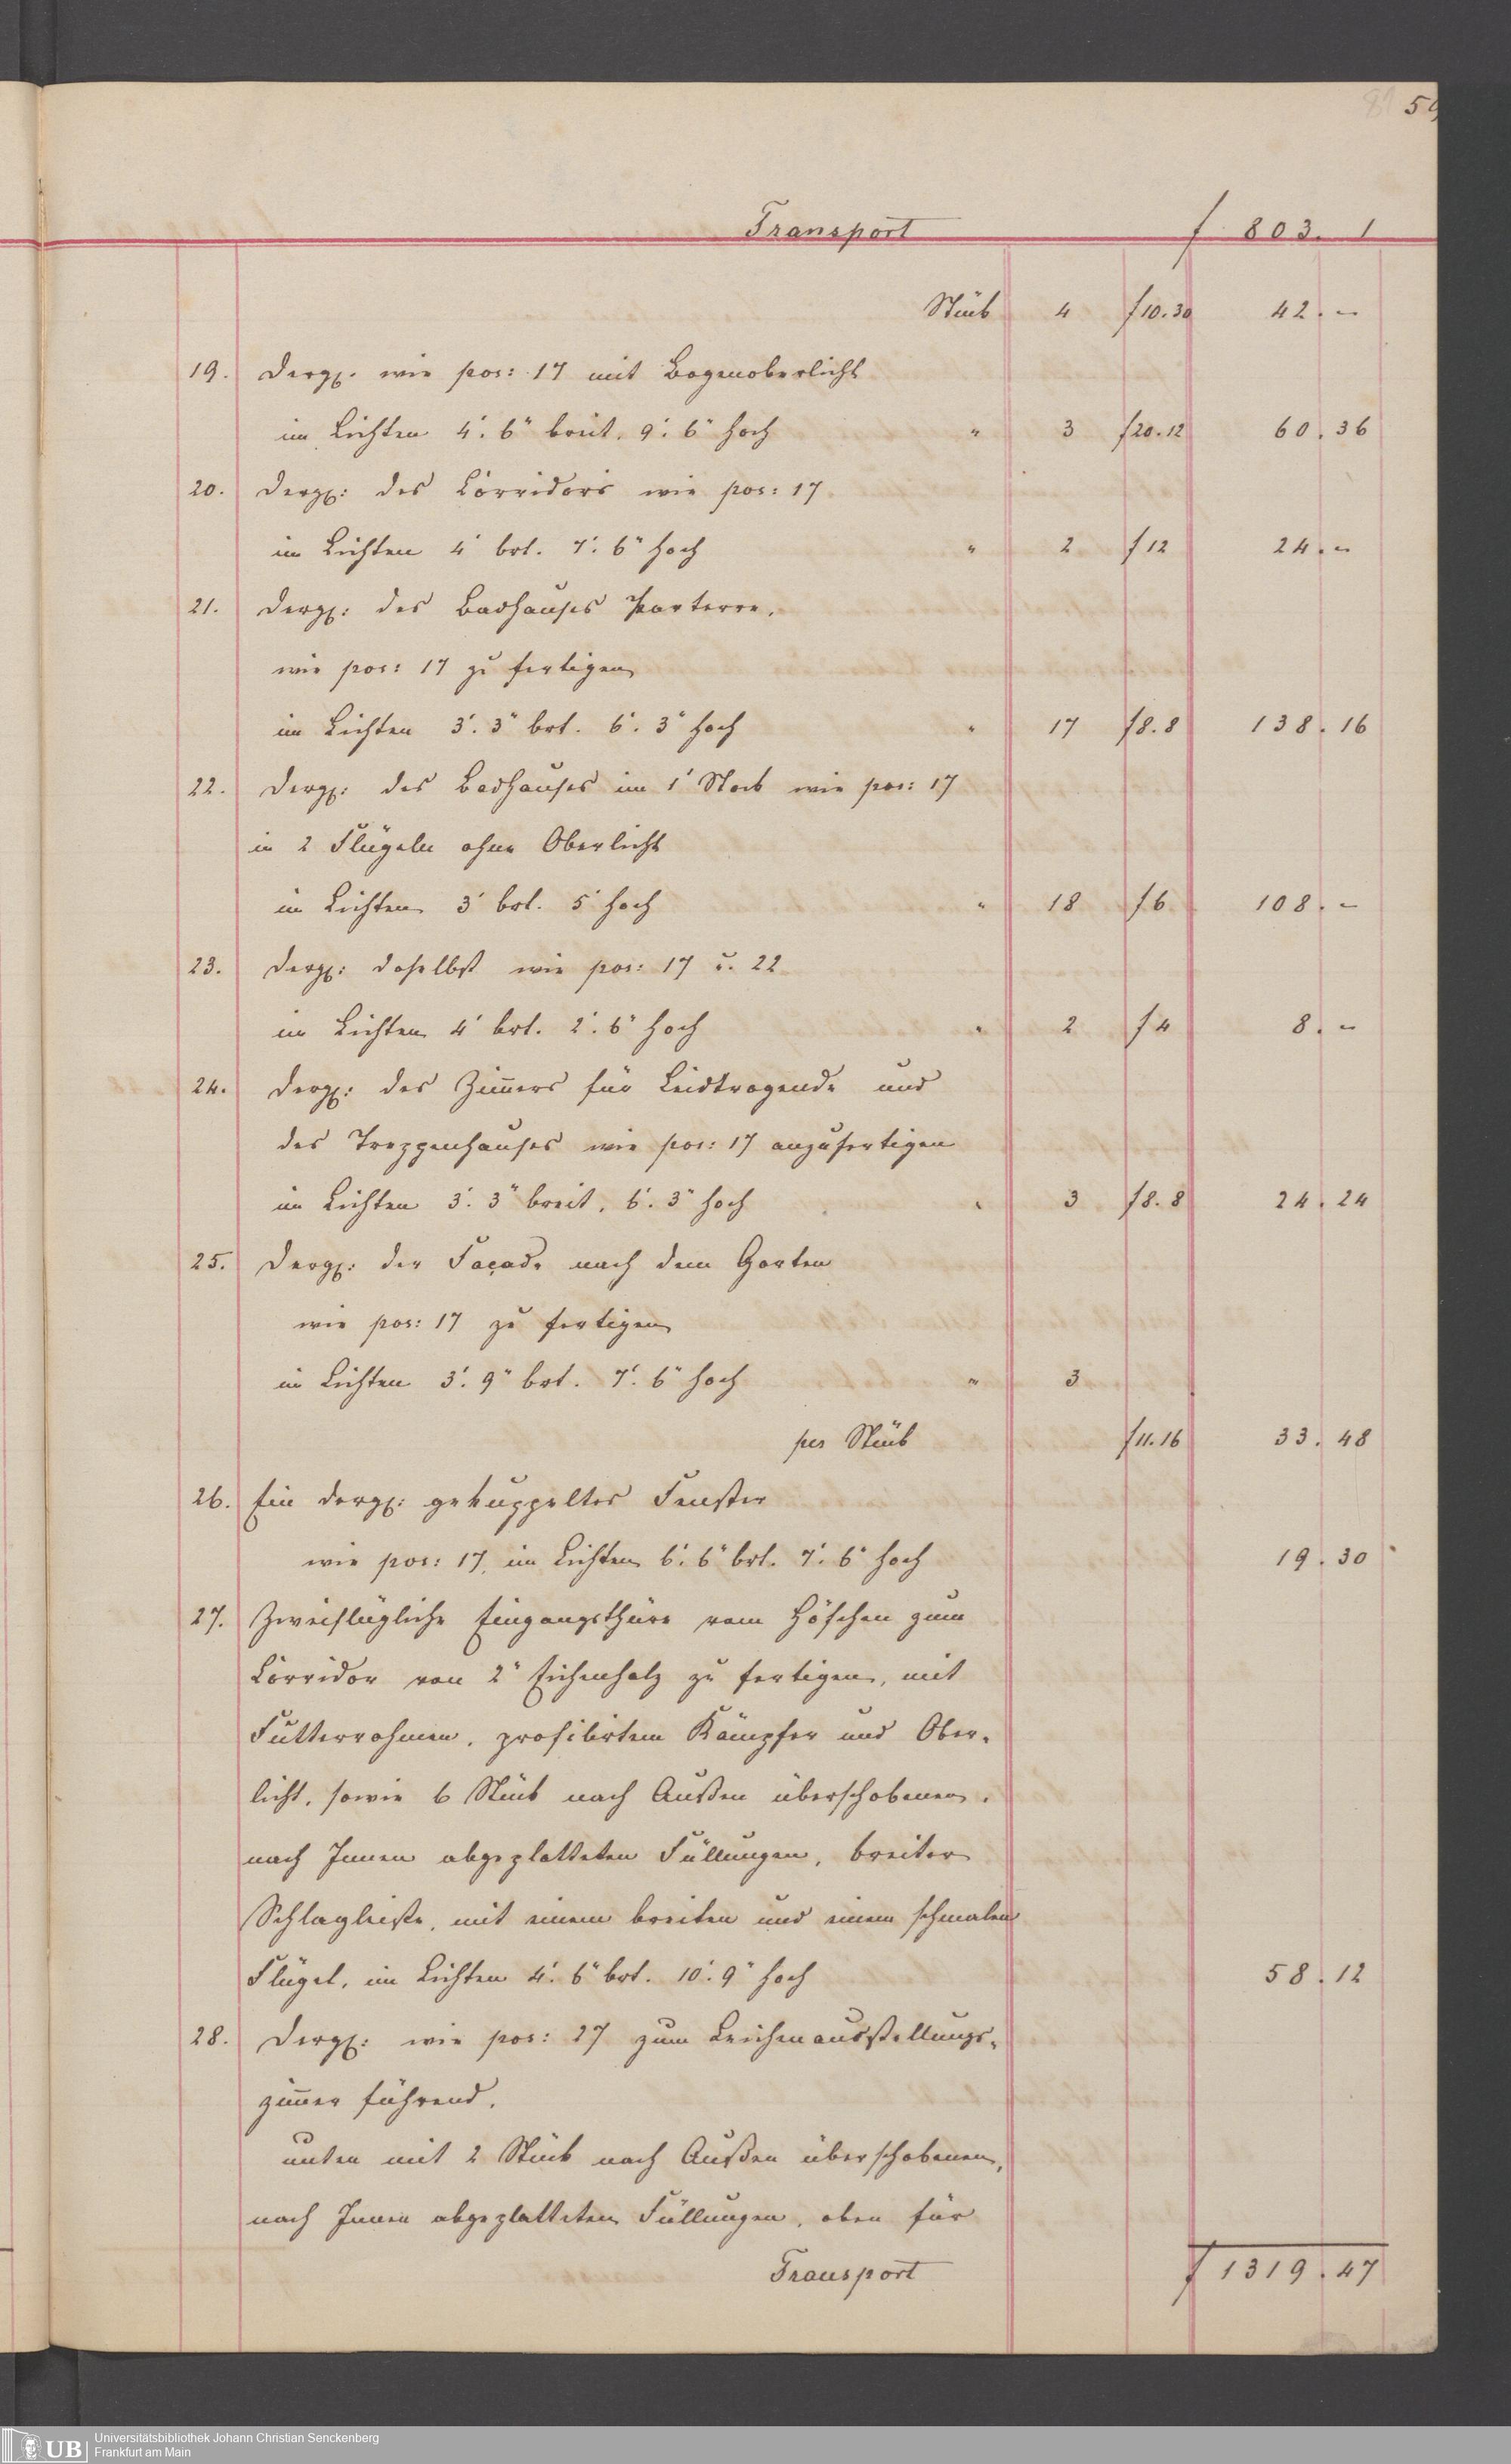 59
Transport f 803. 1
Stück 4 f10.30 42. –
19. Dergl. wie pos: 17 mit Bogenoberlicht
im Lichten 4'. 6" breit. 9'. 6" hoch " 3 f20.12 60. 36
20. Dergl: des Corridors wie pos: 17
im Lichten 4' brt. 7'. 6" hoch " 2 f12 24. –
21. Dergl: des Badhauses Parterre,
wie pos: 17 zu fertigen
im Lichten 3'. 3" brt. 6'. 3" hoch " 17 f8.8 138. 16
22. Dergl: des Badhauses im 1' Stock wie pos: 17
in 2 Flügeln ohne Oberlicht
im Lichten 3' brt. 5' hoch " 18 f6 108. –
23. Dergl: daselbst wie pos: 17 u. 22
im Lichten 4' brt. 2'. 6" hoch " 2 f4 8. –
24. Dergl: des Zim̅ers für Leidtragende und
des Treppenhauses wie pos: 17 anzufertigen
im Lichten 3'. 3" breit, 6'. 3" hoch " 3 f8.8 24. 24
25. Dergl: der Façade nach dem Garten
wie pos: 17 zu fertigen
im Lichten 3'. 9" brt. 7'. 6" hoch " 3
per Stück f11.16 33. 48
26. Ein dergl: gekuppeltes Fenster
wie pos: 17, im Lichten 6'. 6" brt. 7'. 6" hoch 19. 30
27. Zweiflügliche Eingangsthüre vom Höfchen zum
Corridor von 2" Eichenholz zu fertigen, mit
Futterrahmen, profilirtem Kämpfer und Ober-
licht, sowie 6 Stück nach Außen überschobenen,
nach Innen abgeplatteten Füllungen, breiter
Schlagleiste, mit einem breiten und einem schmalen
Flügel, im Lichten 4'. 6" brt. 10'. 9" hoch 58. 12
28. Dergl: wie pos: 27 zum Leichenausstellungs-
zim̅er führend,
unten mit 2 Stück nach Außen überschobenen,
nach Innen abgeplatteten Füllungen, oben für
Transport f 1319. 47
UB Universitätsbibliothek Johann Christian Senckenberg
Frankfurt am Main